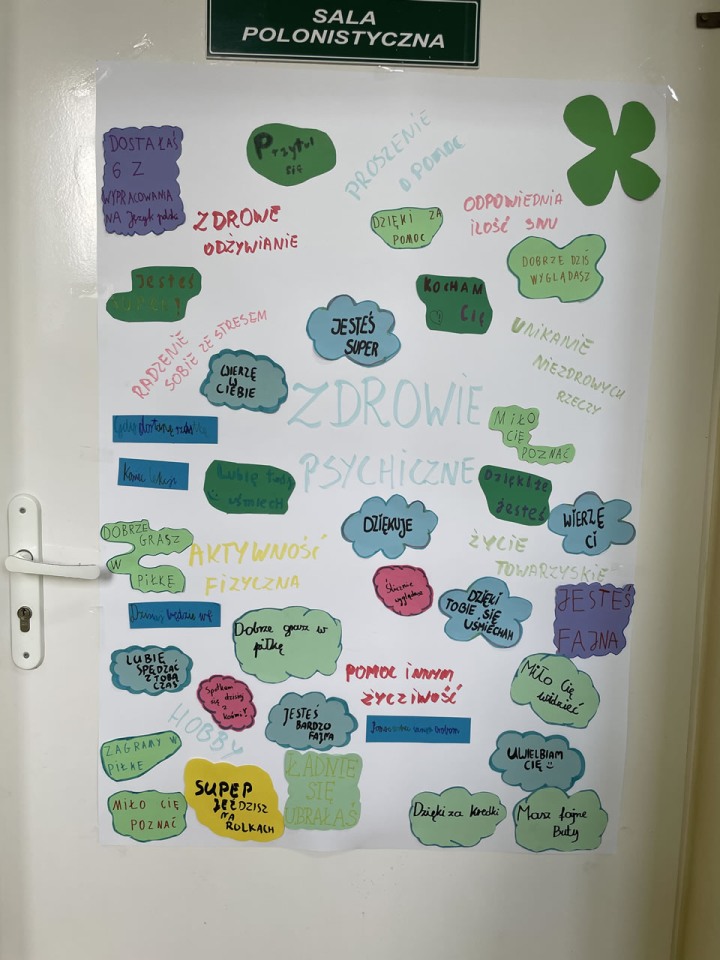 SALA
POLONISTYCZNA
DOSTAŁAŚ
6 Z
WYPRACOWANIA
NA Język polski
Przytul
się
PROSZENIE
O POMOC
ZDROWE
ODŻYWIANIE
DZIĘKI ZA
POMOC
ODPOWIEDNIA
ILOŚĆ SNU
DOBRZE DZIŚ
WYGLĄDASZ
Jesteś
SUPER!
KOCHAM
CIĘ
JESTEŚ
SUPER
UNIKANIE
NIEZDROWYCH
RZECZY
RADZENIE
SOBIE ZE STRESEM
WIERZĘ
W
CIEBIE
ZDROWIE
PSYCHICZNE
MIŁO
CIĘ
POZNAĆ
Lubię Twój
uśmiech
Dzięki że
jesteś
DZIĘKUJE
WIERZĘ
CI
DOBRZE
GRASZ
W
PIŁKĘ
AKTYWNOŚĆ
FIZYCZNA
ŻYCIE
TOWARZYSKIE
Ślicznie
wyglądasz
DZIĘKI
TOBIE SIĘ
UŚMIECHAM
JESTEŚ
FAJNA
Dobrze grasz w
piłkę
LUBIĘ
SPĘDZAĆ
Z TOBĄ
CZAS
POMOC INNYM
ŻYCZLIWOŚĆ
Miło Cię
widzieć
Spotkam
się dzisiaj
z
HOBBY
JESTEŚ
BARDZO
FAJNA
ZAGRAMY W
PIŁKE
UWIELBIAM
CIĘ
SUPER
JEŹDZISZ
NA
ROLKACH
ŁADNIE
SIĘ
UBRAŁAŚ
MIŁO CIĘ
POZNAĆ
Dzięki za kredki
Masz fajne
Buty